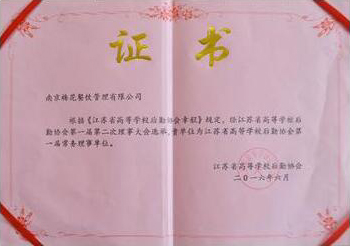 证书
南京梅花餐饮管理有限公司
根据《江苏省高等学校后勤协会章程》规定，经江苏省高等学校后
勤协会第一届第二次理事大会选举，贵单位为江苏省高等学校后勤协会第
一届常务理事单位。
江苏省高等学校后勤协会
二〇一六年六月